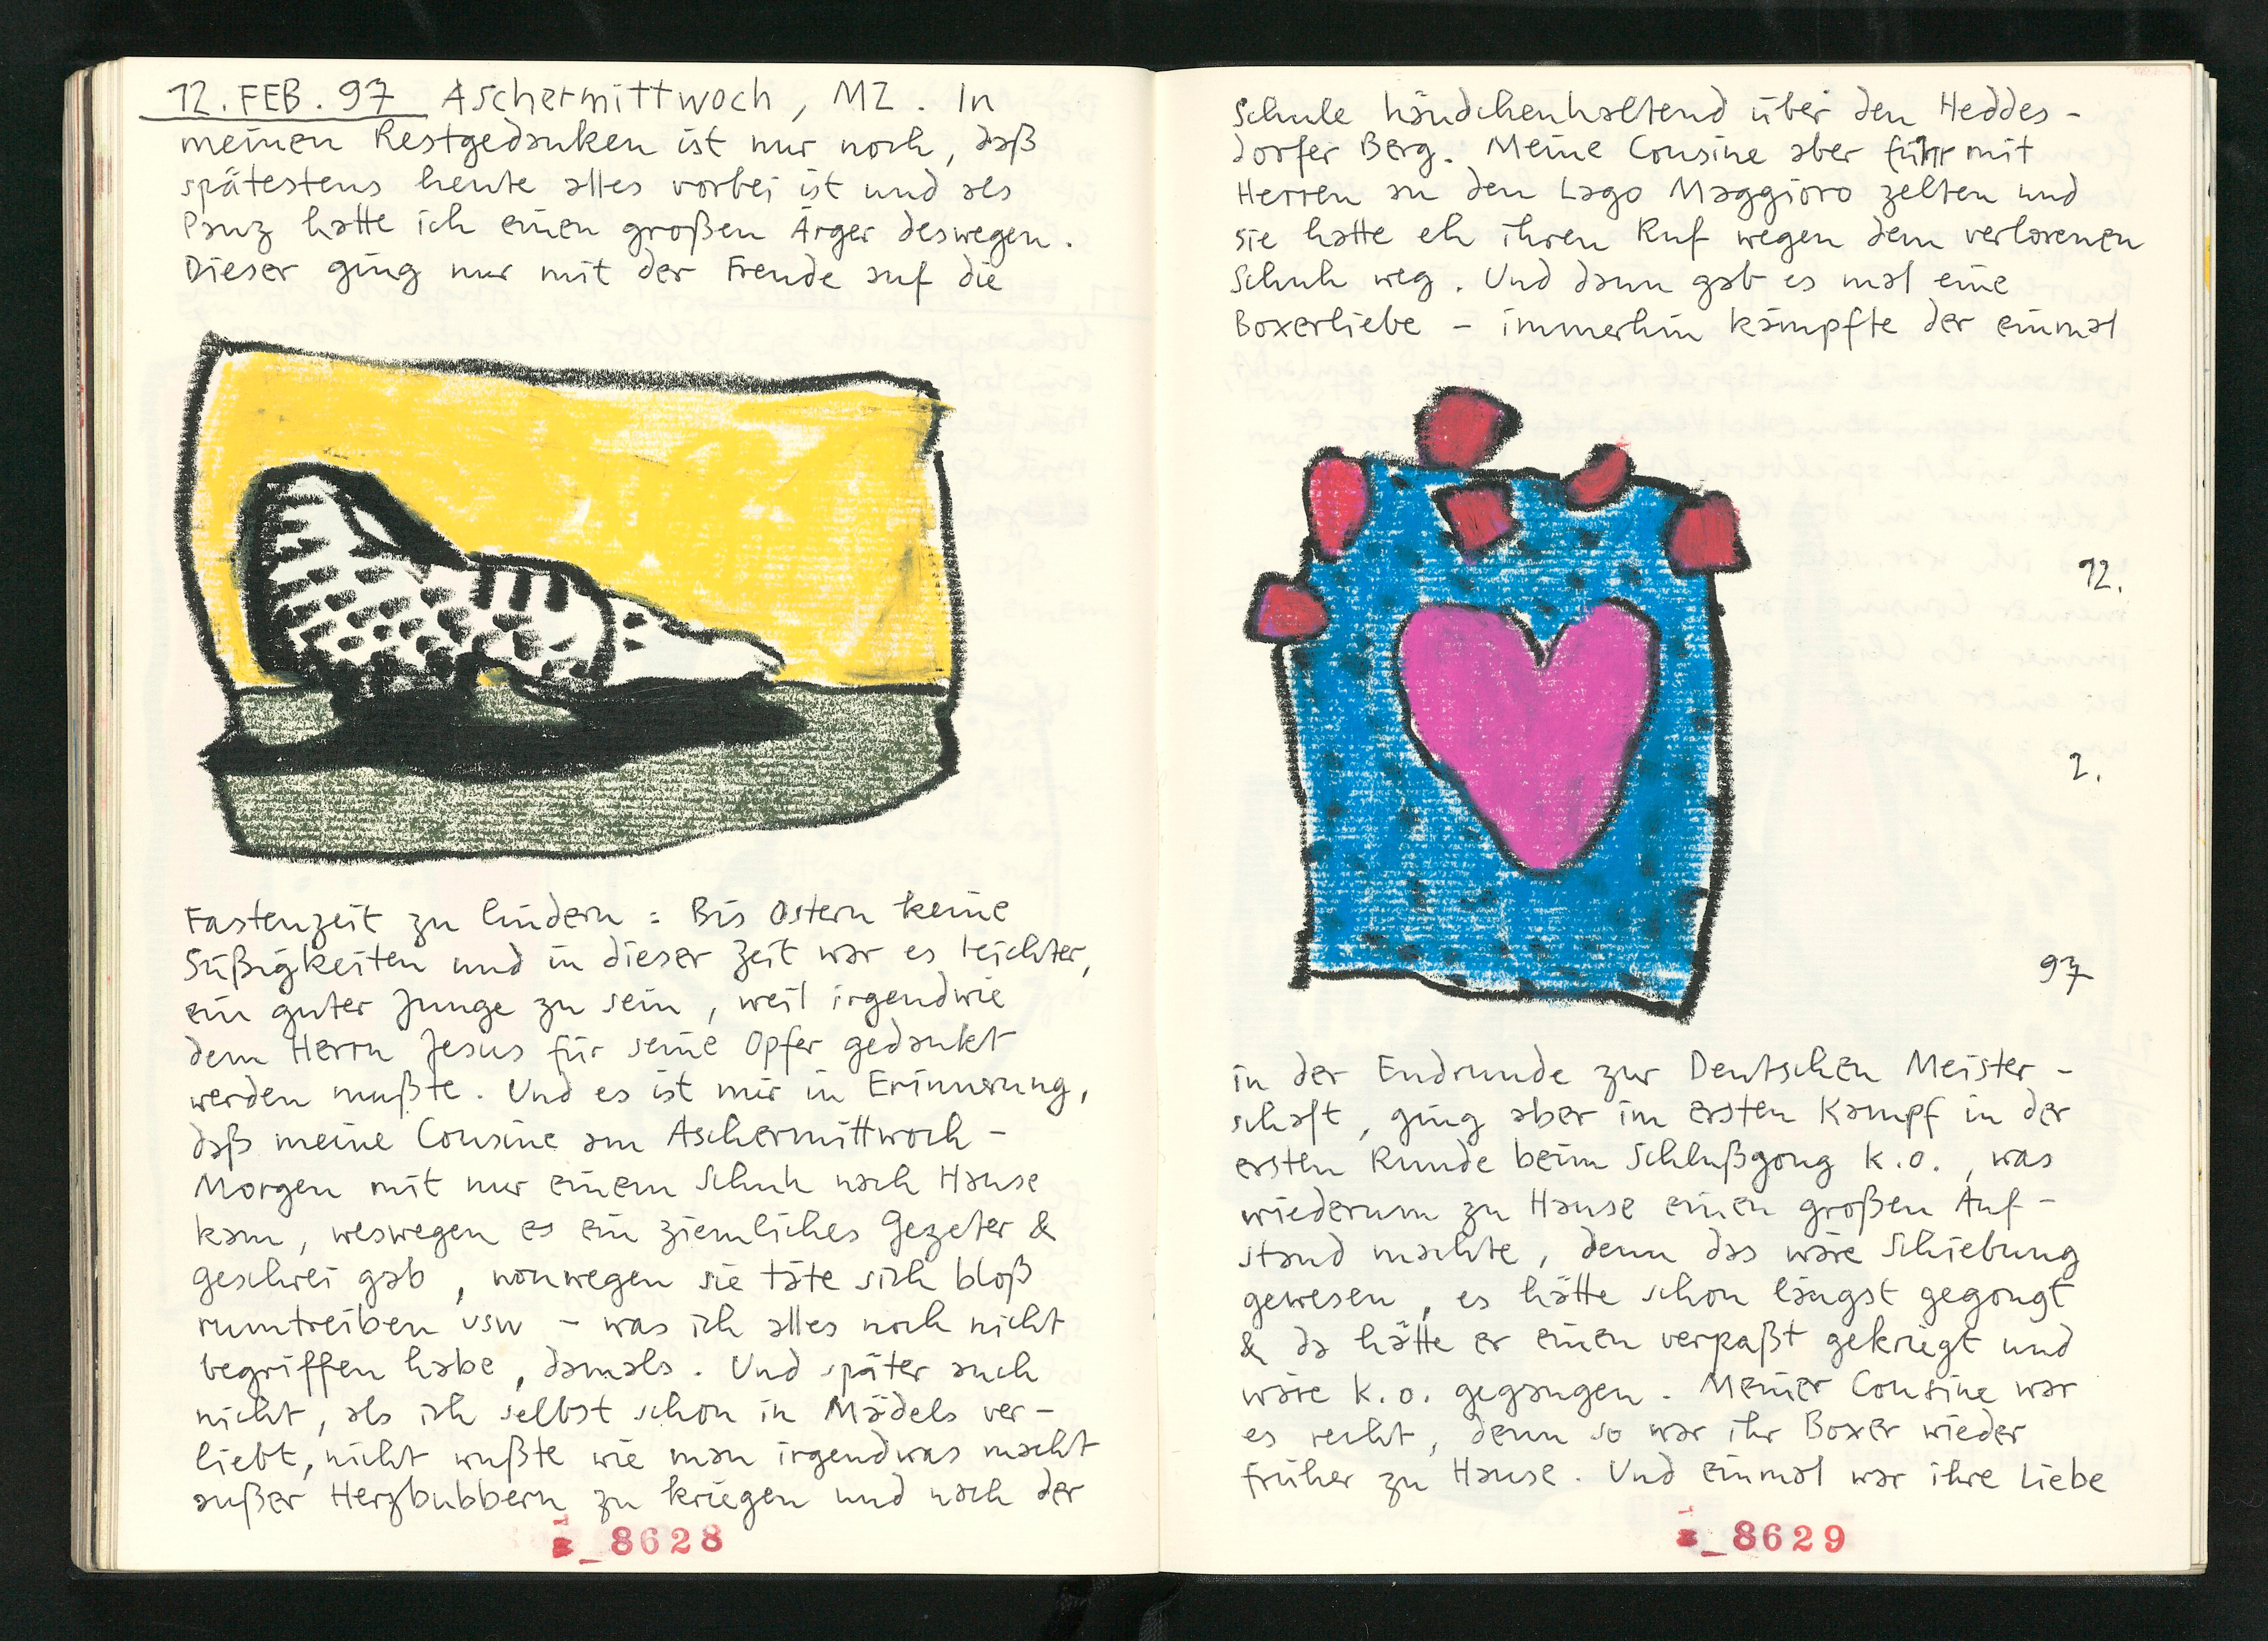 12. FEB. 97 Aschermittwoch, MZ. In
meinen Restgedanken ist nur noch, daß
spätestens heute alles vorbei ist und als
Panz hatte ich einen großen Ärger deswegen.
Dieser ging nur mit der Freude auf die
Fastenzeit zu lindern: Bis Ostern keine
Süßigkeiten und in dieser Zeit war es leichter,
ein guter Junge zu sein, weil irgendwie
dem Herrn Jesus für seine Opfer gedankt
werden mußte. Und es ist mir in Erinnerung,
daß meine Cousine am Aschermittwoch-
Morgen mit nur einem Schuh nach Hause
kam, weswegen es ein ziemliches Gezeter &
Geschrei gab, vonwegen sie täte sich bloß
rumtreiben usw - was ich alles noch nicht
begriffen habe, damals. Und später auch
nicht, als ich selbst schon in Mädels ver-
liebt, nicht wußte wie man irgendwas macht
außer Herzbubbern zu kriegen und nach der
8628
Schule händchenhaltend über den Heddes-
dorfer Berg. Meine Cousine aber fuhr mit
Herren an den Lago Maggioro zelten und
sie hatte eh ihren Ruf wegen dem verlorenen
Schuh weg. Und dann gab es mal eine
Boxerliebe - immerhin kämpfte der einmal
12.
2.
97
in der Endrunde zur Deutschen Meister-
schaft, ging aber im ersten Kampf in der
ersten Runde beim Schlußgong k.o., was
wiederum zu Hause einen großen Auf-
stand machte, denn das wäre Schiebung
gewesen, es hätte schon längst gegongt
& da hätte er einen verpaßt gekriegt und
wäre k.o. gegangen. Meiner Cousine war
es recht, denn so war ihr Boxer wieder
früher zu Hause. Und einmal war ihre Liebe
8629